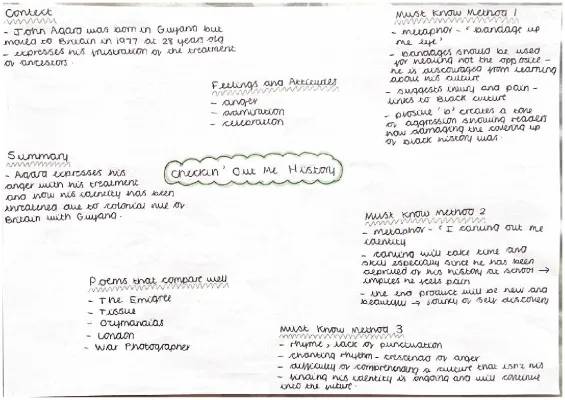 Context
- John Agard was born in Guyana but
moved to Britain in 1977 at 28 years old
- expresses his frustration of the treatment
of ancestors.
Must Know Method 1
- metaphor - 'bandage up
me eye'
- bandages should be used
for healing not the opposite -
he is discouraged from learning
about his culture
- suggests injury and pain -
links to Black culture
- plosive 'b' creates a tone
of aggression showing readers
how damaging the covering up
of black history was.
Feelings and Attitudes
- anger
- admiration
- celebration
Summary
- Agard expresses his
anger with his treatment
and how his identity has been
threatened due to colonial rule of
Britain with Guyana.
Checkin' Out Me History
Must Know method 2
- metaphor - 'I carving out me
identity
- carving will take time and
skill especially since he has been
deprived of his history at school →
implies he feels pain
- the end product will be new and
beautiful → journey of self discovery
Poems that compare well
- The Emigree
- Tissue
- Ozymandias
- London
- War Photographer
Must Know Method 3
- rhyme, lack of punctuation
- chanting rhythm - crescendo of anger
- difficulty of comprehending a culture that isn't his
- finding his identity is ongoing and will continue
into the future.